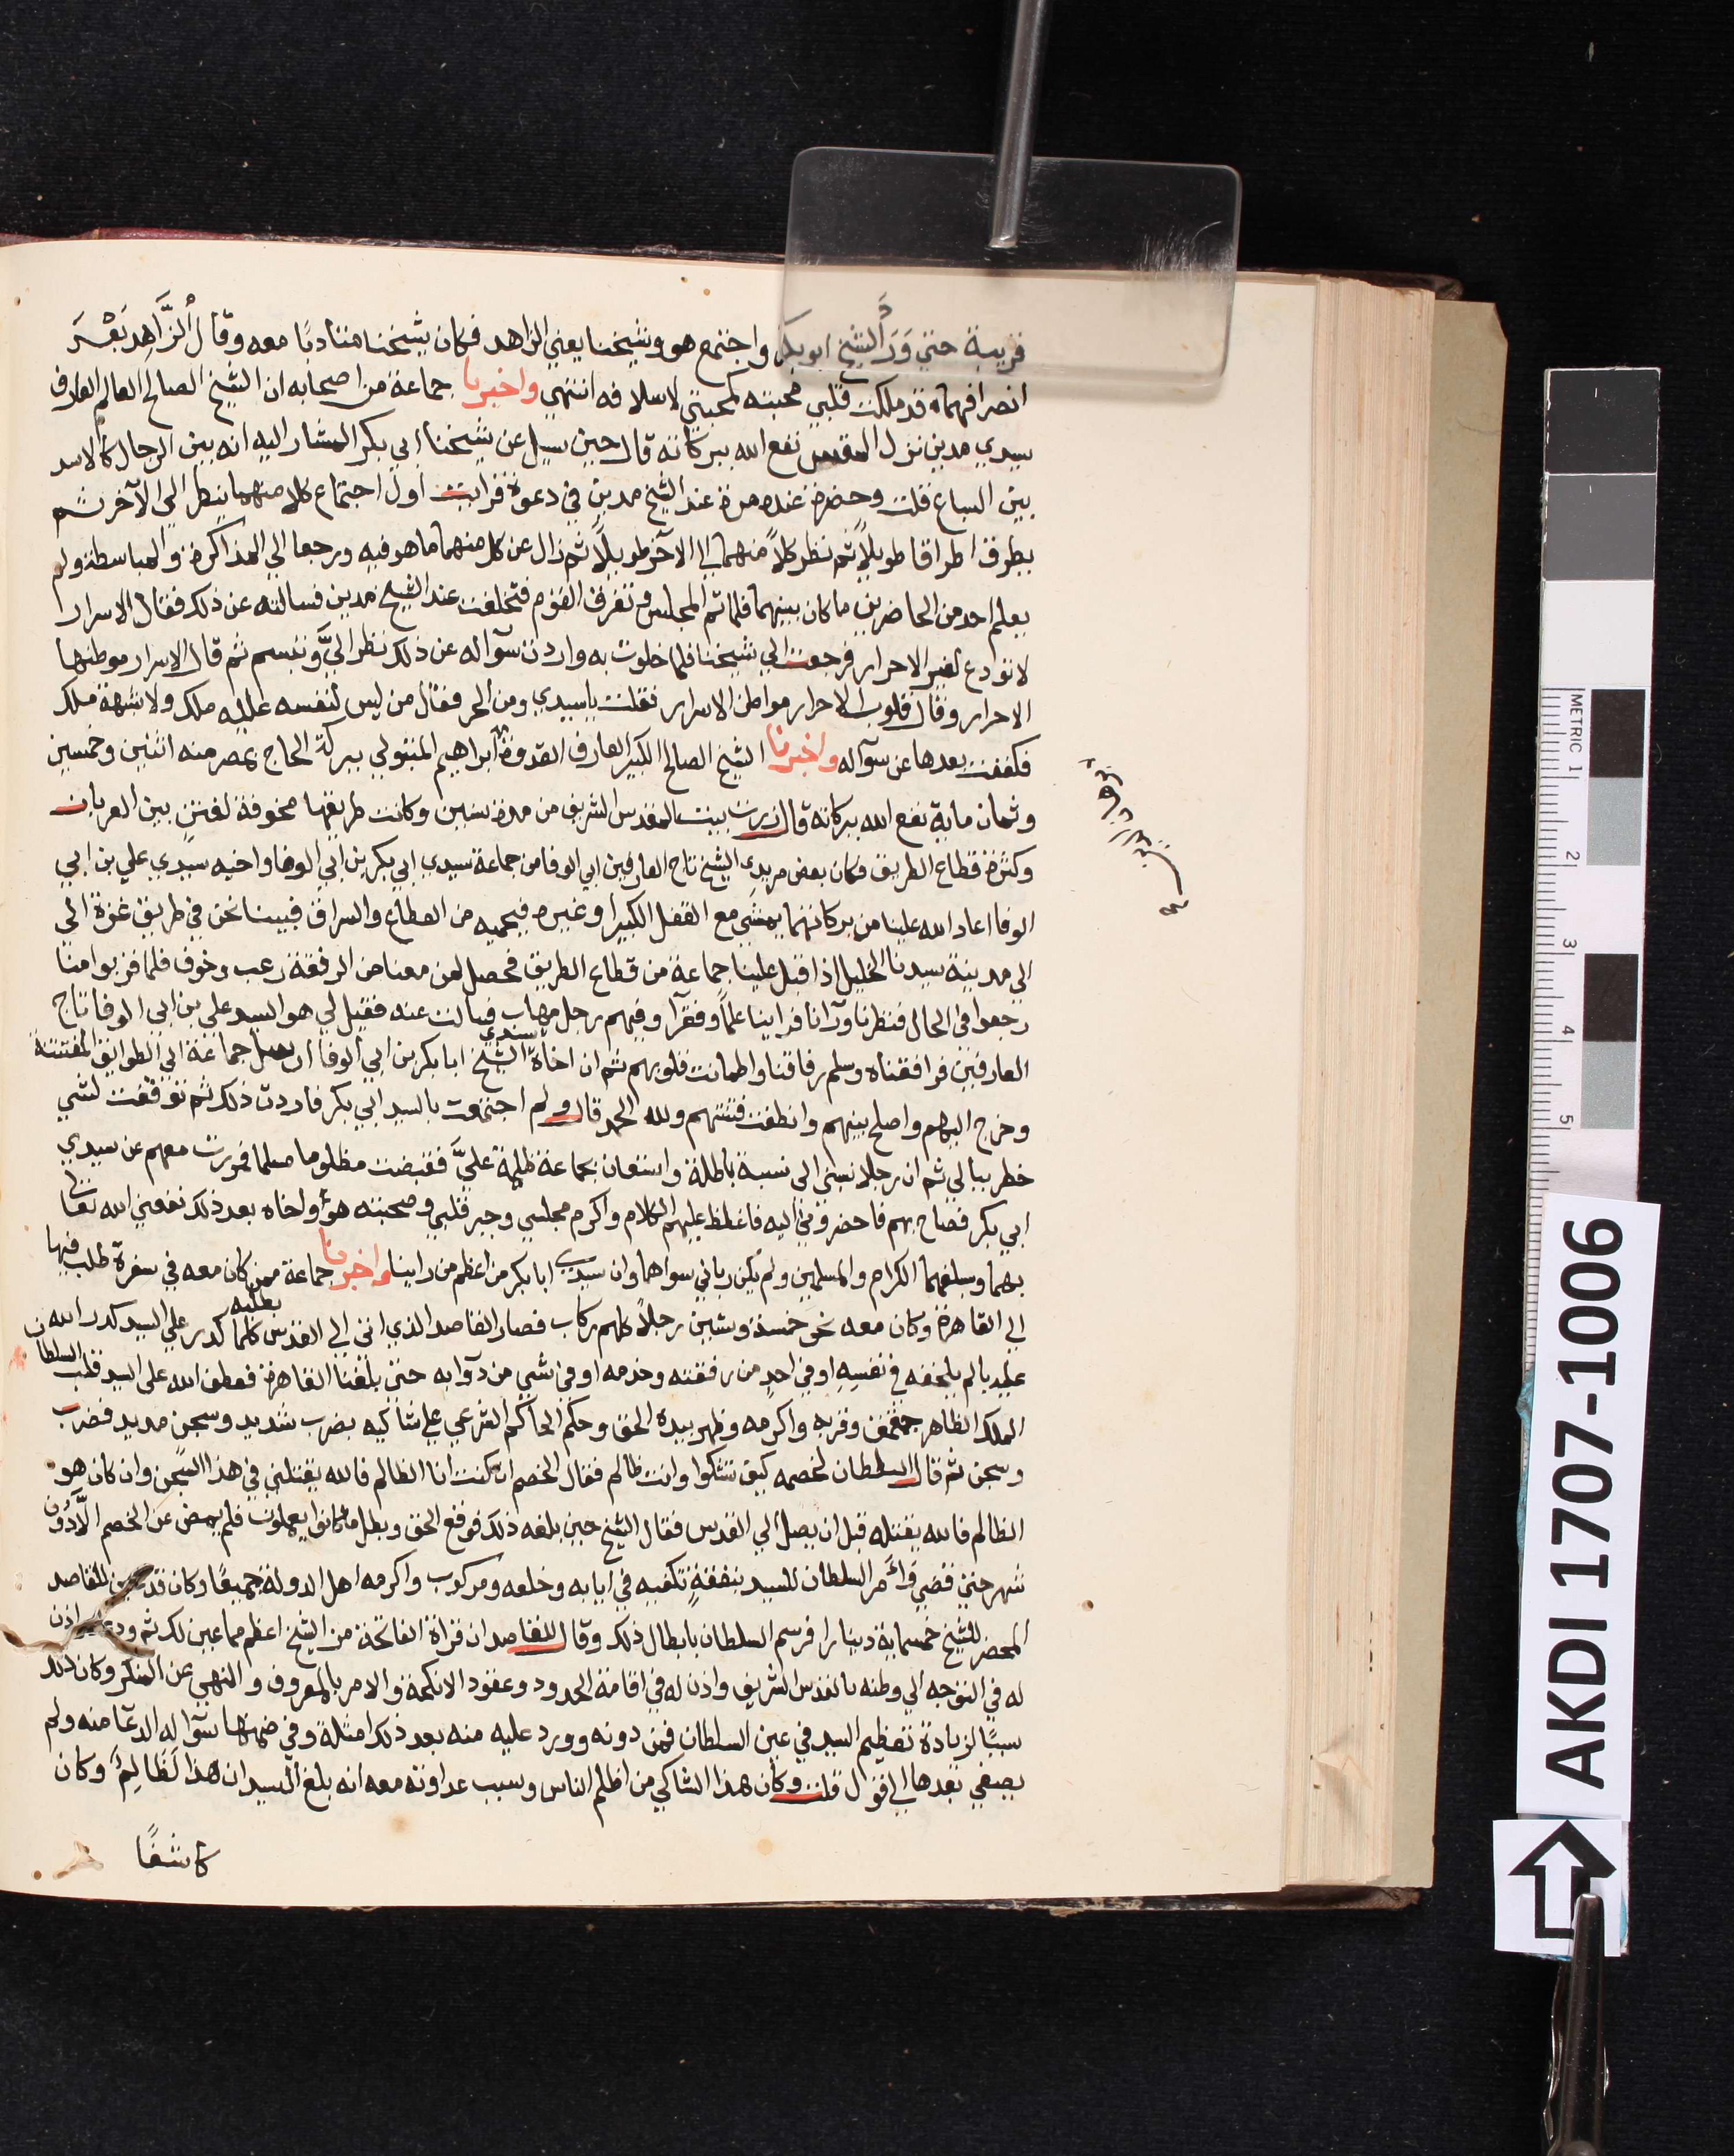 قريبة حتي وَرَدَ الشيخ ابو بكر واجتمع هو وشيخنا يعني الزاهد فكان شيخنا متادبًا معه وقال الزَّاهِد بَعْدَ
انصرافهما قد ملكت قلبي محبته لمحبتي لاسلافه انتهي واخبرنا جماعة من اصحابه ان الشيخ الصالح العالم العارف
سيدي مدين نزل المقدس نفع الله ببركاته قال حين سيل عن شيخنا ابي بكر المشار اليه انه بين الرجال كالاسد
بين السباع قلت وحضرت عنده مرة عند الشيخ مدين في دعوة فرايت اول اجتماع كلا منهما ينظر الي الآخر ثم
يطرق اطراقا طويلاً ثم نظر كلاً منهما الي الآخر طويلاً ثم زال عن كل منهما ما هو فيه ورجعا الي المذاكرة والمباسطة ولم
يعلم احد من الحاضرين ما كان بينهما فلما تم المجلس وتفرق القوم فتخلفت عند الشيخ مدين فسالته عن ذلك فقال الاسرار
لا تودع لغير الاحرار فرجعت الي شيخنا فلما خلوت به واردت سوآله عن ذلك نظر اليَّ وتبسم ثم قال الاسرار موطنها
الاحرار وقال قلوب الاحرار مواطن الاسرار فقلت ياسيدي ومن الحر فقال من ليس لنفسه عليه ملك ولا شبهة ملك
فكففت بعدها عن سوآله واخبرنا الشيخ الصالح الكبير العارف القدوة ابراهيم المتبولي ببركة الحاج بمصر سنه اثنين وخمسين
وثمان ماية نفع الله ببركاته قال زرت بيت المقدس الشريف من مدة سنين وكانت طريقها مخوفة لفتن بين العربان
وكثرة قطاع الطريق فكان بعض مريدي الشيخ تاج العارفين ابي الوفا من جماعة سيدي ابي بكر بن ابي الوفا واخيه سيدي علي بن ابي
الوفا اعاد الله علينا من بركاتهما يمشي مع القفل الكبير او غيره فيحميه من القطاع والسراق فبينا نحن في طريق غزة الي
الي مدينة سيدنا الخليل اذا قبل علينا جماعة من قطاع الطريق فحصل لمن معنا من الرفقة رعب وخوف فلما قربوا منا
رجعوا في الحال فنظرنا ورآنا فراينا علماً وفقرآ وفيهم رجل مهاب فسالت عنه فقيل لي هو السيد علي بن ابي الوفا تاج
العارفين فرافقناه وسلم رفاقنا واطمانت قلوبهم ثم ان اخاه سيدي الشيخ ابا بكر بن ابي الوفا ارسل جماعة الي الطوايف المفتتنة
وخرج اليهم واصلح بينهم وانطفت فتنتهم ولله الحمد قال ولم اجتمعت بالسيد ابي بكر فاردت ذلك ثم توقفت لشي
خطر ببالي ثم ان رجلا نسبني الي نسبة باطلة واستعان بجماعة ظلمة عليَّ فقبضت مظلوما مسلما فمررت معهم عن سيدي
ابي بكر فصاح بهم فاحضروني اليه فاغلظ عليهم الكلام واكرم مجلسي وجبر قلبي وصحبته هو واخاه بعد ذلك نفعني الله تعالي
بهما وسلفهما الكرام والمسلمين ولم يكن رباني سواهما وان سيدي ابا بكر من اعظم من راينا واخبرنا جماعة ممن كان معه في سفرة طلب فيها
الي القاهرة وكان معه نحو خمسة وستين رجلاً كلهم ركاب فصار القاصد الذي اتي الي القدس بطلبه كلما كدر علي السيد كدر الله
عليه بالم يلحقه في نفسِه او في احدٍ من رفقته وخدمه او في شي من دوآبه حتي بلغنا القاهرة فعطف الله علي السيد قلب السلطان
الملك الظاهر جقمق وقربه واكرمه وظهر بيده الحق وحكم الحاكم الشرعي علي شاكيه بضرب شديد وسجن مديد فضرب
وسجن ثم قال السلطان لخصمه كيف تشكوا وانت ظالم فقال الخصم ان كنت انا الظالم فالله يقتلني في هذا السجن وان كان هو
الظالم فالله يقتله قبل ان يصل الي القدس فقال الشيخ حين بلغه ذلك فوقع الحق وبطل ما كانوا يعملون فلم يمض عن الخصم الَّا دُون
شهر حتي قضي وَاَمَر السلطان للسيد بنفقةٍ تكفيه في ايابه وخلعه ومركوب واكرمه اهل الدولة جميعًا وكان قد عين للقاصد
المحضر للشيخ خمسماية دينارا فرسم السلطان بابطال ذلك وقال للقاصد ان قراة الفاتحة من الشيخ اعظم مما عين لك ثم اذن
له في التوجه الي وطنه بالقدس الشريف واذن له في اقامة الحدود وعقود الانكحة والامر بالمعروف والنهي عن المنكر وكان ذلك
سببًا لزيادة تعظيم السيد في عين السلطان فمن دونه وورد عليه منه بعد ذلك امثلة وفي ضمنها سوآله الدعا منه ولم
يصغي بعدها الي قول قلت وكان هذا الشاكي من اظلم الناس وسبب عداوته معه انه بلغ السيد ان هذا لَظَالِمٌ وكان
كاشفًا